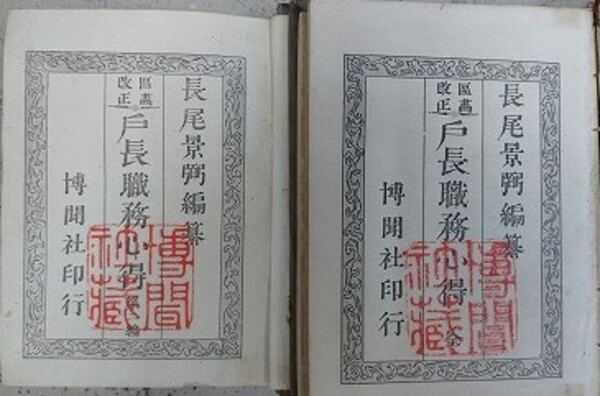 長尾景弼編纂
區畫
改正
戶長職務心得
博聞社印行
博聞
社藏
長尾景弼編纂
區畫
改正
戶長職務心得 全
博聞社印行
博聞
社藏